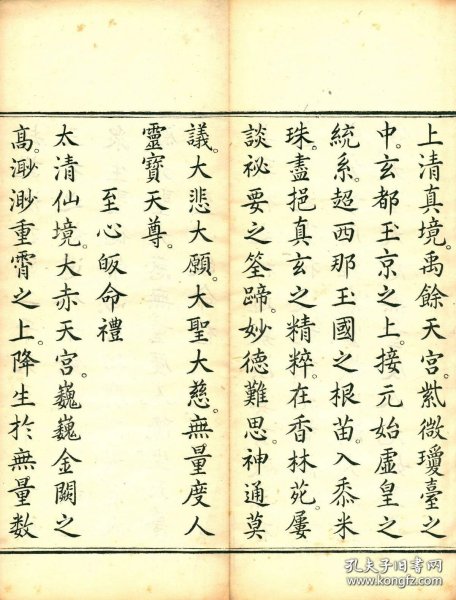 上清真境。禹餘天宮。紫微瓊臺之
中。玄都玉京之上。接元始虛皇之
統系。超西那玉國之根苗。入黍米
珠。盡挹真玄之精粹。在香林苑。屢
談祕要之筌蹄。妙德難思。神通莫
議。大悲大願。大聖大慈。無量度人
靈寶天尊。
至心皈命禮
太清仙境。大赤天宮。巍巍金闕之
高。渺渺重霄之上。降生於無量数
孔夫子旧书网
www.kongfz.com